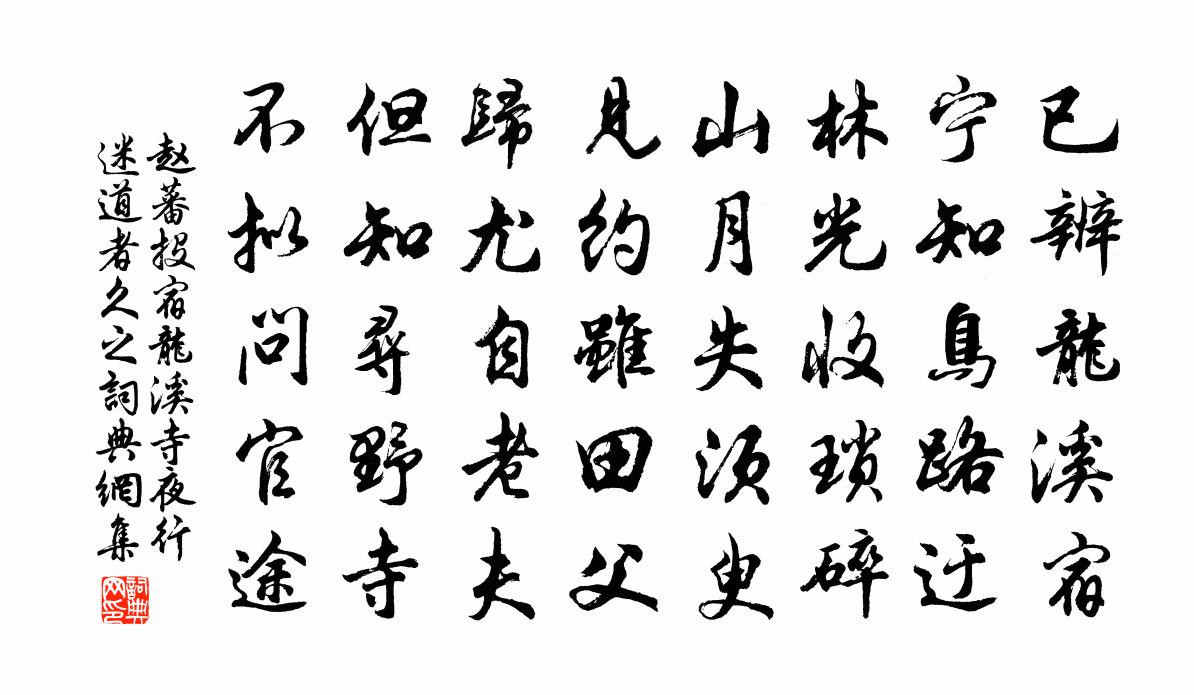 已辨龍溪宿
宁知鳥路迂
林光收瑣碎
山月失須臾
見約雖田父
歸尤自老夫
但知尋野寺
不拟問官途
赵蕃投宿龍溪寺夜行
迷道者久之詞典網集
詞典網印